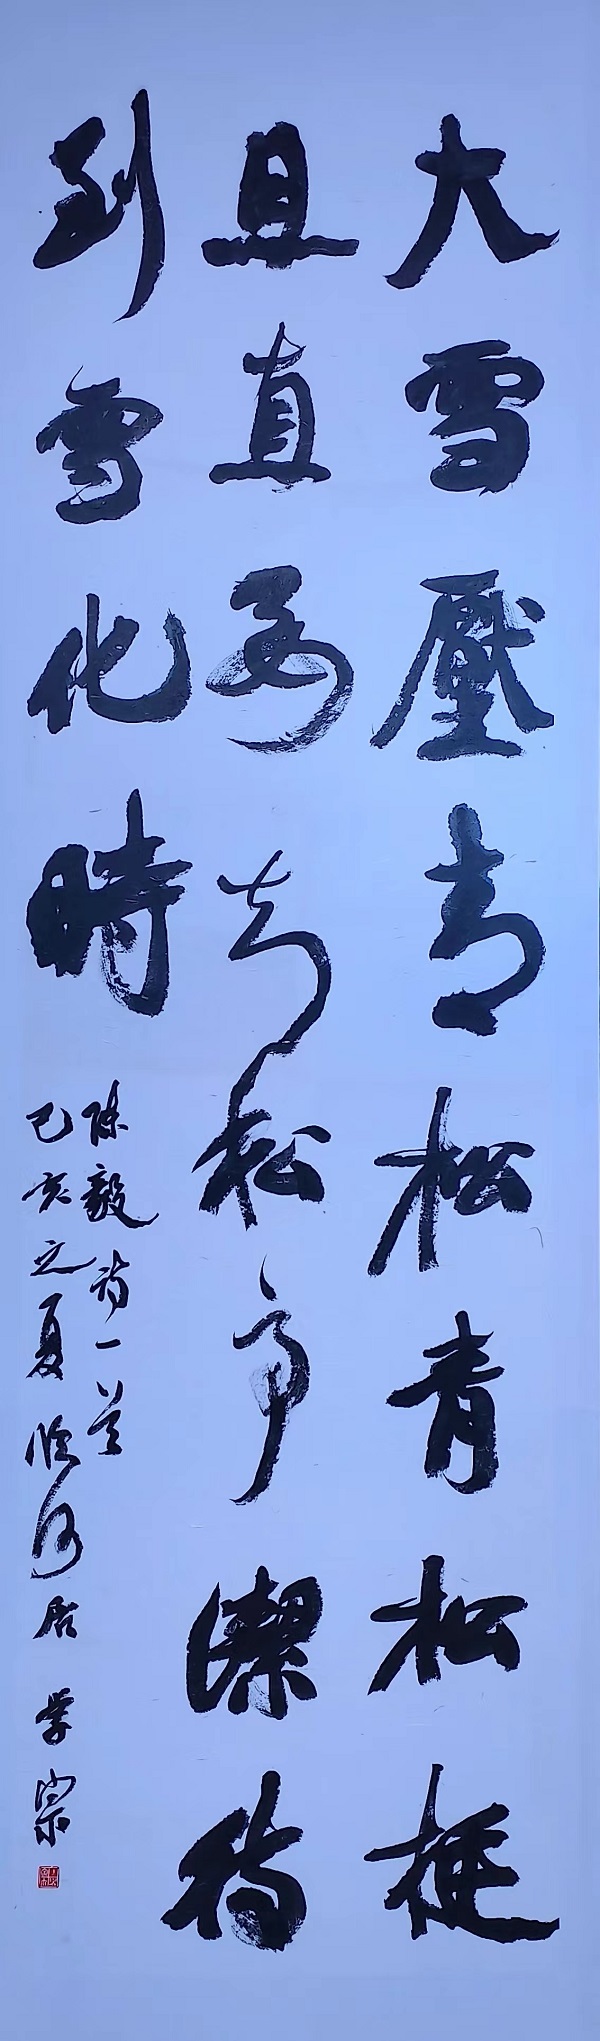 大雪壓青松青松挺
且直要知松高潔待
到雪化時
陳毅詩一首
己亥之夏臨河居 學宗